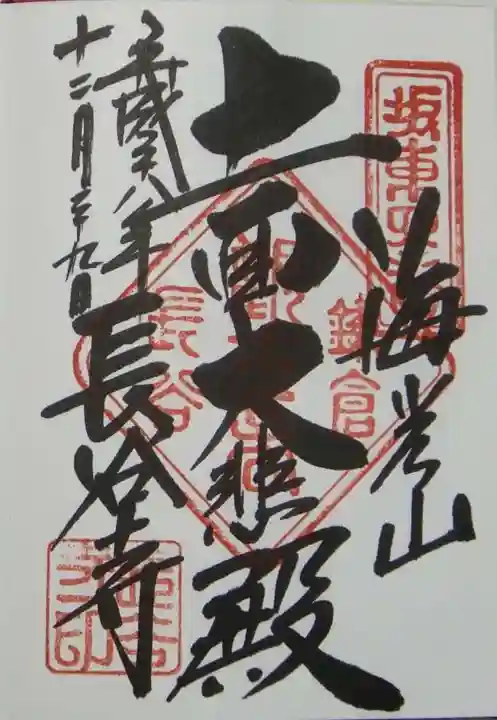 坂東四
海光山
鎌倉
十一面大悲殿
長谷
平成廿八年
長谷寺
十二月二十九日